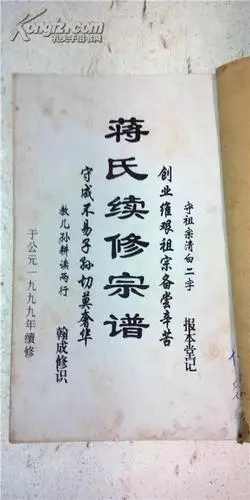 kongfz.com
孔夫子旧书网
守祖宗清白二字
报本堂记
创业维艰祖宗备尝辛苦
蒋氏续修宗谱
守成不易子孙切莫奢华
教儿孙耕读两行
翰成修识
于公元一九九九年續修